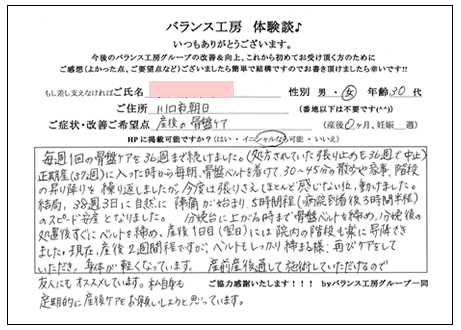 バランス工房 体験談♪
いつもありがとうございます。
今後のバランス工房グループの改善&向上、これから初めてお受け頂く方のために
ご感想(よかった点、ご要望点など)ございましたら簡単で結構ですのでお書き頂けましたら幸いです!!
もし差し支えなければご氏名 性別 男・女 年齢30代
ご住所 川口市朝日 (番地以下は不要です(^^))
ご症状・改善ご希望点 産後の骨盤ケア (産後0ヶ月、妊娠 週)
HPに掲載可能ですか?(はい・イニシャルなら可能・いいえ)
毎週1回の骨盤ケアを36週まで続けました。(処方されていた張り止めも36週で中止)
正期産(37週)に入った時から毎朝、骨盤ベルトを着けて、30~45分の散歩や家事、階段
の昇り降りを繰り返しましたが、今度は張りさえほとんど感じない位、動けました。
結局、38週3日に自然に陣痛が始まり、5時間程(病院到着後3時間半程)
のスピード安産となりました。分娩台に上がる時まで骨盤ベルトを締め、分娩後の
処置後すぐにベルトを締め、産後1日目(翌日)には院内の階段も楽に昇降でき
ました。現在、産後2週間程ですが、ベルトもしっかり締まる様、再びケアをして
いただき、身体が軽くなっています。産前産後通して施術していただけるので
友人にもオススメしています。私自身も
定期的に産後ケアをお願いしようと思っています。
ご協力感謝いたします!!! byバランス工房グループ一同